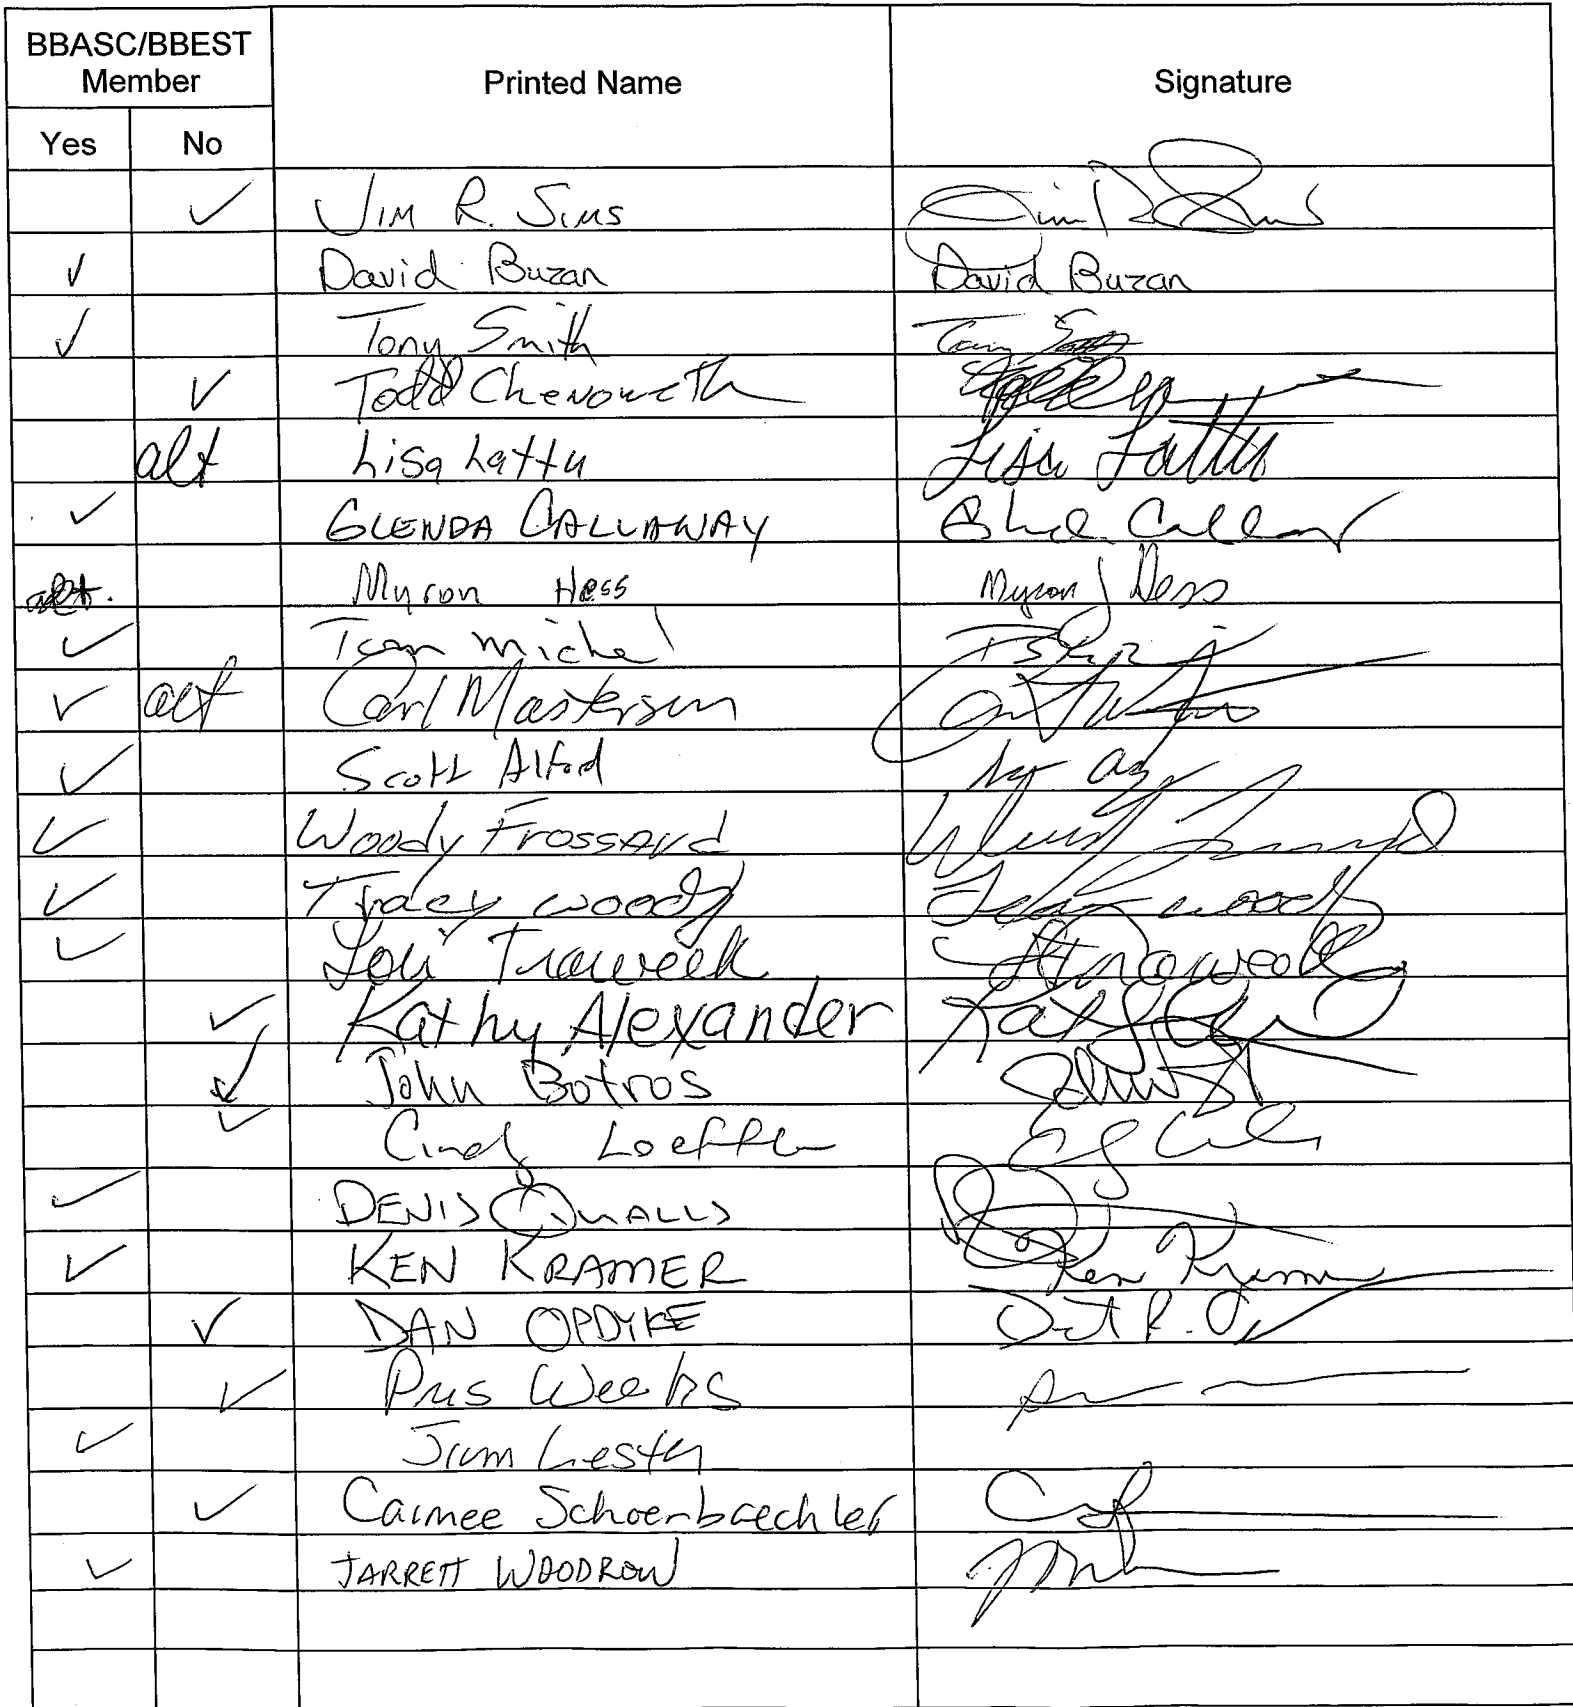 BBASC/BBEST
Member
Printed Name
Signature
Yes
No
✓ Jim R. Sims Jim R Sims
✓ David Buzan David Buzan
✓ Tony Smith Tony Smith
✓ Todd Chenoweth
alt Lisa Lattu Lisa Lattu
✓ GLENDA CALLAWAY Callaway
alt. Myron Hess Myron J Hess
✓ Tom Michel
✓ alt Carl Masterson
✓ Scott Alford
✓ Woody Frossard
✓ Tracy Woody Woody
✓ Lori Traweek Traweek
✓ Kathy Alexander
✓ John Botros
✓ Cindy Loeffler
✓ DENIS QUALLS
✓ KEN KRAMER Ken Kramer
✓ DAN OPDYKE
✓ Prus Weeks
✓ Jim Lester
✓ Caimee Schoenbaechler
✓ JARRETT WOODROW